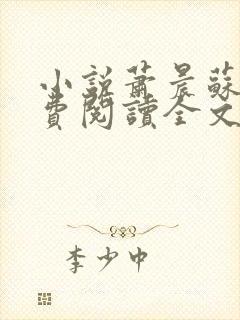 小説蕭晨蘇
費閱讀全文
李少中